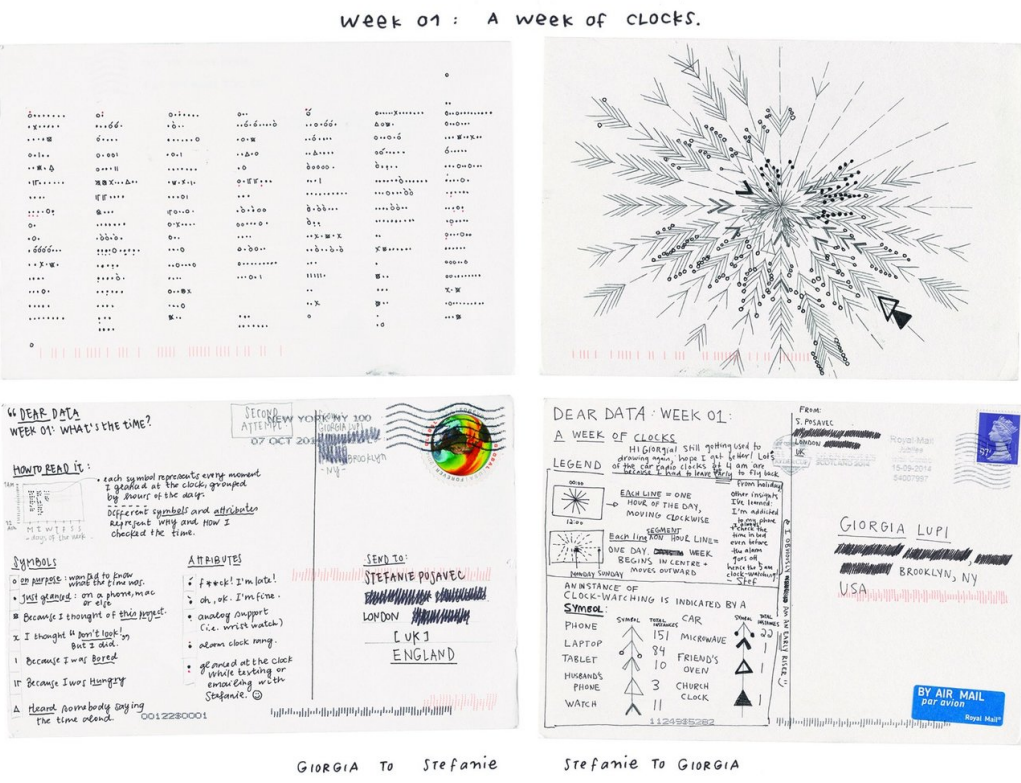 WEEK 01: A WEEK OF CLOCKS.
"DEAR DATA
WEEK 01: WHAT'S THE TIME?
SECOND ATTEMPT
NEW YORK NY 100
07 OCT
GIORGIA LUPI
BROOKLYN
-NY-
HOW TO READ IT:
• each symbol represents every moment
I glanced at the clock, grouped
by hours of the day.
Different symbols and attributes
represent WHY and HOW I
checked the time.
M T W T F S S
days of the week
SYMBOLS
on purpose: wanted to know
what the time was.
Just glanced: on a phone, mac
or else
Because I thought of this project.
X I thought "Don't look!"
But I did.
I Because I was Bored
Because I was Hungry
Δ Heard somebody saying
the time aloud.
ATTRIBUTES
f**ck! I'm late!
oh, ok. I'm fine.
analog support
(i.e. wrist watch)
alarm clock rang.
glanced at the clock
while texting or
emailing with
Stefanie. ☺
SEND TO:
STEFANIE POSAVEC
LONDON
[UK]
ENGLAND
DEAR DATA: WEEK 01:
A WEEK OF CLOCKS
Hi Giorgia! Still getting used to
drawing again, hope I get better! Lots
of the car radio clocks at 4 am are
because I had to leave early to fly back
from holiday
other insights
I've learned:
I'm addicted
to my phone
check the
time in bed
even before
the alarm
goes off
hence the 5am
clock-watching.
Stef
LEGEND
00:00
12:00
EACH LINE = ONE
HOUR OF THE DAY,
MOVING CLOCKWISE
SEGMENT
Each line ON HOUR LINE =
ONE DAY. WEEK
BEGINS IN CENTRE +
MOVES OUTWARD
MONDAY SUNDAY
AN INSTANCE OF
CLOCK-WATCHING IS INDICATED BY A
SYMBOL:
SYMBOL TOTAL INSTANCES
PHONE 151
LAPTOP 84
TABLET 10
HUSBAND'S
PHONE 3
WATCH 11
SYMBOL TOTAL INSTANCES
CAR 22
MICROWAVE 1
FRIEND'S
OVEN 1
CHURCH
CLOCK 1
I OBVIOUSLY AM AN EARLY RISER
FROM:
S. POSAVEC
LONDON
UK
Royal Mail
15-09-2014
54007997
GIORGIA LUPI
BROOKLYN, NY
USA
BY AIR MAIL
par avion
Royal Mail
GIORGIA TO Stefanie
Stefanie TO GIORGIA